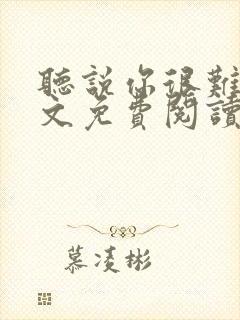 聽說你很難
文免費閱讀
慕凌彬